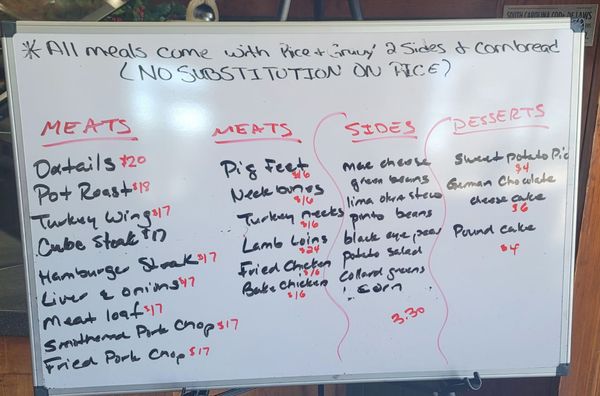 SOUTH CAROLINA CODE OF LAWS
* All meals come with Rice + Gravy 2 Sides & Cornbread
(NO SUBSTITUTION ON RICE)
MEATS
Oxtails $20
Pot Roast $18
Turkey Wing $17
Cube Steak $17
Hamburger Steak $17
Liver & onions $17
Meat loaf $17
Smothered Pork Chop $17
Fried Pork Chop $17
MEATS
Pig Feet
$16
Neckbones
$16
Turkey necks
$16
Lamb Loins
$24
Fried Chicken
$16
Bake Chicken
$16
SIDES
mac cheese
green beans
lima okra stew
pinto beans
black eye peas
potato salad
collard greens
corn
3.30
DESSERTS
Sweet Potato Pie
$4
German Chocolate
cheese cake
$6
Pound cake
$4